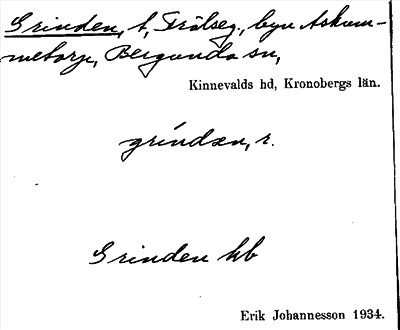 Grinden, t, Frälseg., byn Askum-
metorp, Bergunda sn,
Kinnevalds hd, Kronobergs län.
gríndæn, r.
Grinden hb
Erik Johannesson 1934.